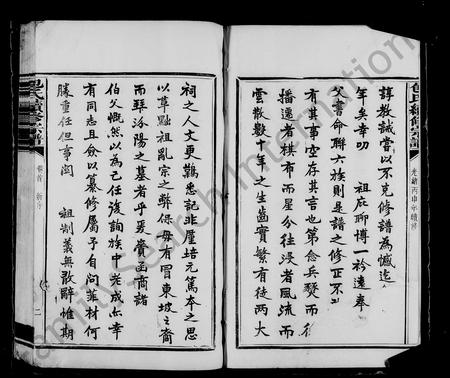 包氏續修宗譜
光緒丙申年續修
諄教誡嘗以不克修譜為憾迄
年矣幸叨 祖庇聊博一衿遠奉
父書命聯六族則是譜之修正不
有其事空存其言也第念兵燹而後
播遷者棋布而星分往浸者風流而
雲散數十年之生齒實繁有徒兩大
祠之人文更難悉記非厚培元篤本之思
以草黜祖亂宗之弊保毋有冒東坡之裔
而拜汾陽之墓者乎爰賚函商諸
伯父慨然以為己任復詢族中老成亦幸
有同志且僉以纂修屬予自問菲材何
勝重任但事關 祖制義無敢辭惟期
包氏續修宗譜
卷首 新序
二
Amity Search International